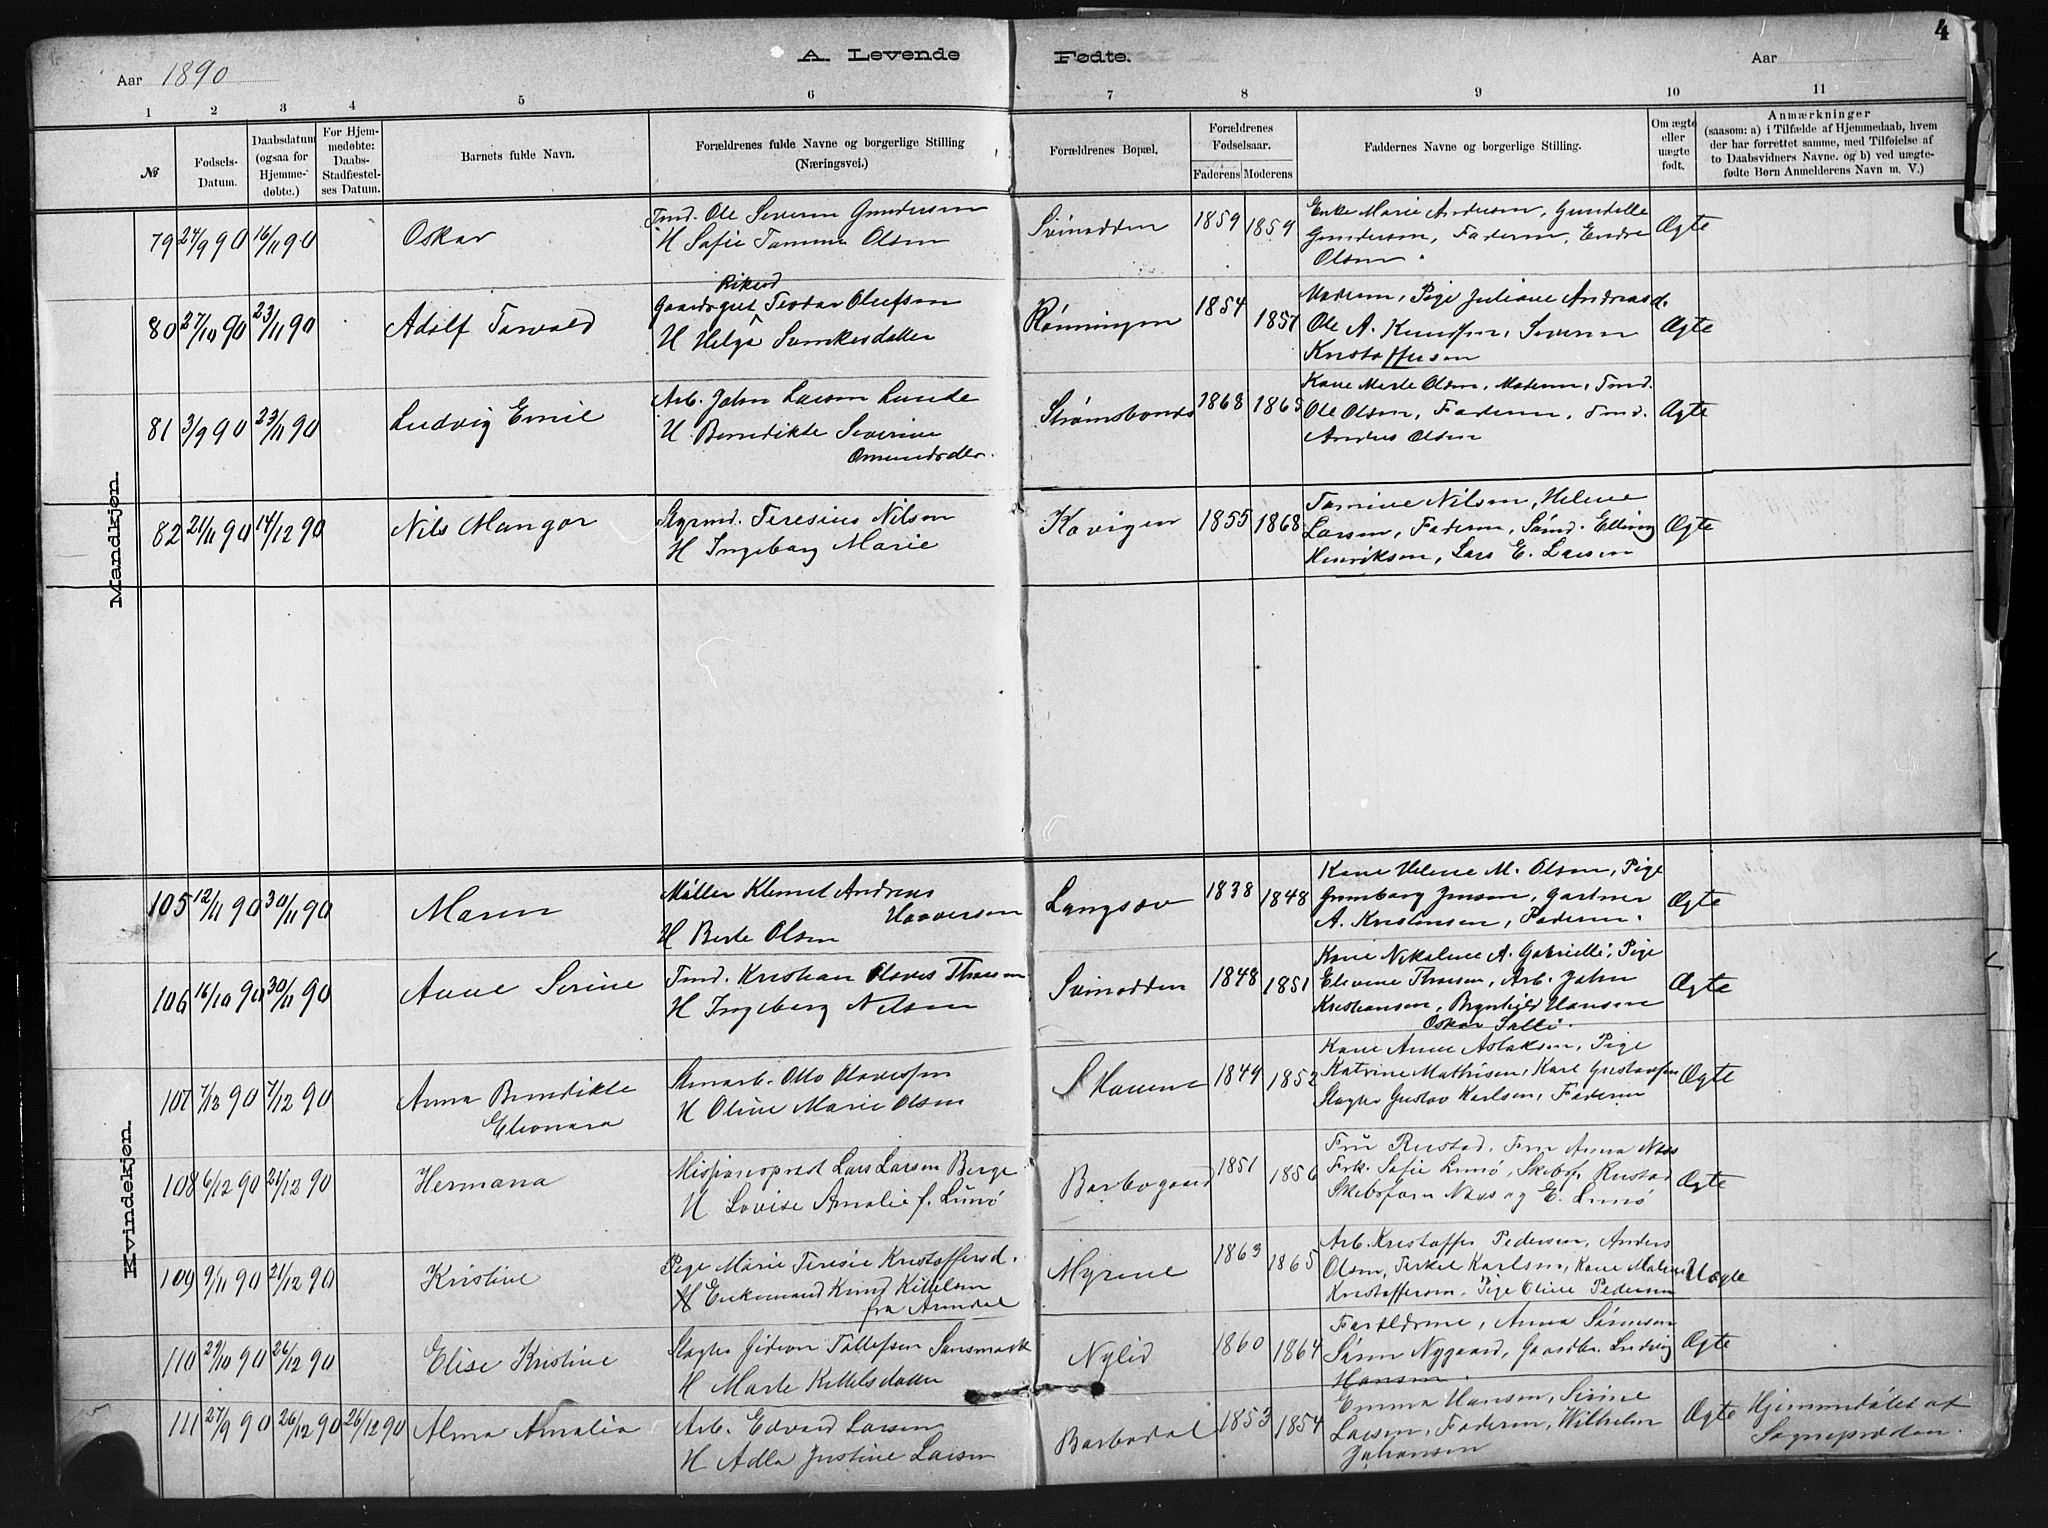 4
Aar 1890
A. Levende Fødte.
Aar
1 2 3 4 5 6 7 8 9 10 11
№
Fødsels-Datum.
Daabsdatum (ogsaa for Hjemme-døbte.)
For Hjem-medøbte: Daabs-Stadfæstel-ses Datum.
Barnets fulde Navn.
Forældrenes fulde Navne og borgerlige Stilling (Næringsvei.)
Forældrenes Bopæl.
Forældrenes Fødselsaar.
Faderens Moderens
Faddernes Navne og borgerlige Stilling.
Om ægte eller uægte født.
Anmærkninger
(saasom: a) i Tilfælde af Hjemmedaab, hvem
der har forrettet samme, med Tilføielse af
to Daabsvidners Navne, og b) ved uægte-
fødte Børn Anmelderens Navn m. V.)
Mandkjøn.
79 24/9 90 16/11 90 Oskar
Tmd. Ole Severin Gundersen
H Sofie Tomine Olsen
Svinodden 1859 1859
Enke Marie Andersen, Gundelle
Gundersen, Faderen, Endre
Olsen.
Ægte
80 27/10 90 23/11 90 Adolf Torvald
Rikard
Gaardsgut Teodor Olufsen
H Helga Svenkesdatter
Rønningen 1854 1857
Moderen, Pige Juliane Andreasd.
Ole A. Knudsen, Severin
Kristoffersen
Ægte
81 3/9 90 23/11 90 Ludvig Emil
Arb. John Larsen Lunde
H Benedikte Severine
Omundsdtr.
Strømsbunds 1868 1865
Kone Marte Olsen, Moderen, Tmd.
Ole Olsen, Faderen, Tmd.
Anders Olsen
Ægte
82 21/11 90 14/12 90 Nils Mangor
Styrmd. Teresius Nilsen
H Ingeborg Marie
Kovigen 1855 1868
Tomine Nilsen, Helene
Larsen, Faderen, Sømd. Elling
Henriksen, Lars E. Larsen
Ægte
Kvindekjøn.
105 12/11 90 30/11 90 Maren
Møller Klemet Andreas
Haaversen
H Berte Olsen
Langsæv 1838 1848
Kone Helene M. Olsen, Pige
Gunborg Jensen, Gartner
A. Kristensen, Faderen.
Ægte
106 16/10 90 30/11 90 Anne Serine
Tmd. Kristian Olaves Thorsen
H Ingeborg Nilsen
Svinodden 1848 1851
Kone Nikoline A. Gabrielli, Pige
Elevine Thorsen, Arb. John
Kristiansen, Brynhild Hansen
Oskar Salli.
Ægte
107 7/12 90 7/12 90 Anna Benedikte
Eleonora
Stenarb. Otto Olavessen
H Oline Marie Olsen
Skarene 1849 1852
Kone Anne Aslaksen, Pige
Katrine Mathisen, Karl Gustavsen
Slagter Gustav Karlsen, Faderen
Ægte
108 6/12 90 21/12 90 Hermana
Missionsprest Lars Larsen Berge
H Lovise Amalie f. Lunø
Barbogaard 1851 1856
Fru Rustad, Fru Anna Næss
Frk. Sofie Lunø, Skibsf. Rustad
Skibsform Næss og E. Lunø
Ægte
109 9/11 90 21/12 90 Kristine
Pige Marie Teresie Kristoffersd.
H Enkemand Knud Kittelsen
fra Arendal
Myrene 1863 1865
Arb. Kristoffer Pedersen, Anders
Olsen, Terkel Karlsen, Kone Malene
Kristoffersen, Pige Oline Pedersen
Uægte
110 29/10 90 26/12 90 Elise Kristine
Slagter Gideon Tollefsen Sansmark
H Marte Kittelsdatter
Nylid 1860 1864
Forældrene, Anna Sørensen
Søren Nygaard, Gaardbr. Ludvig
Hansen.
Ægte
111 27/9 90 26/12 90 26/12 90 Alma Amalia
Arb. Edvard Larsen
H Adla Justine Larsen
Barbodal 1853 1854
Emma Hansen, Serine
Larsen, Faderen, Wilhelm
Johansen
Ægte
Hjemmedøbt af
Sognepræsten.